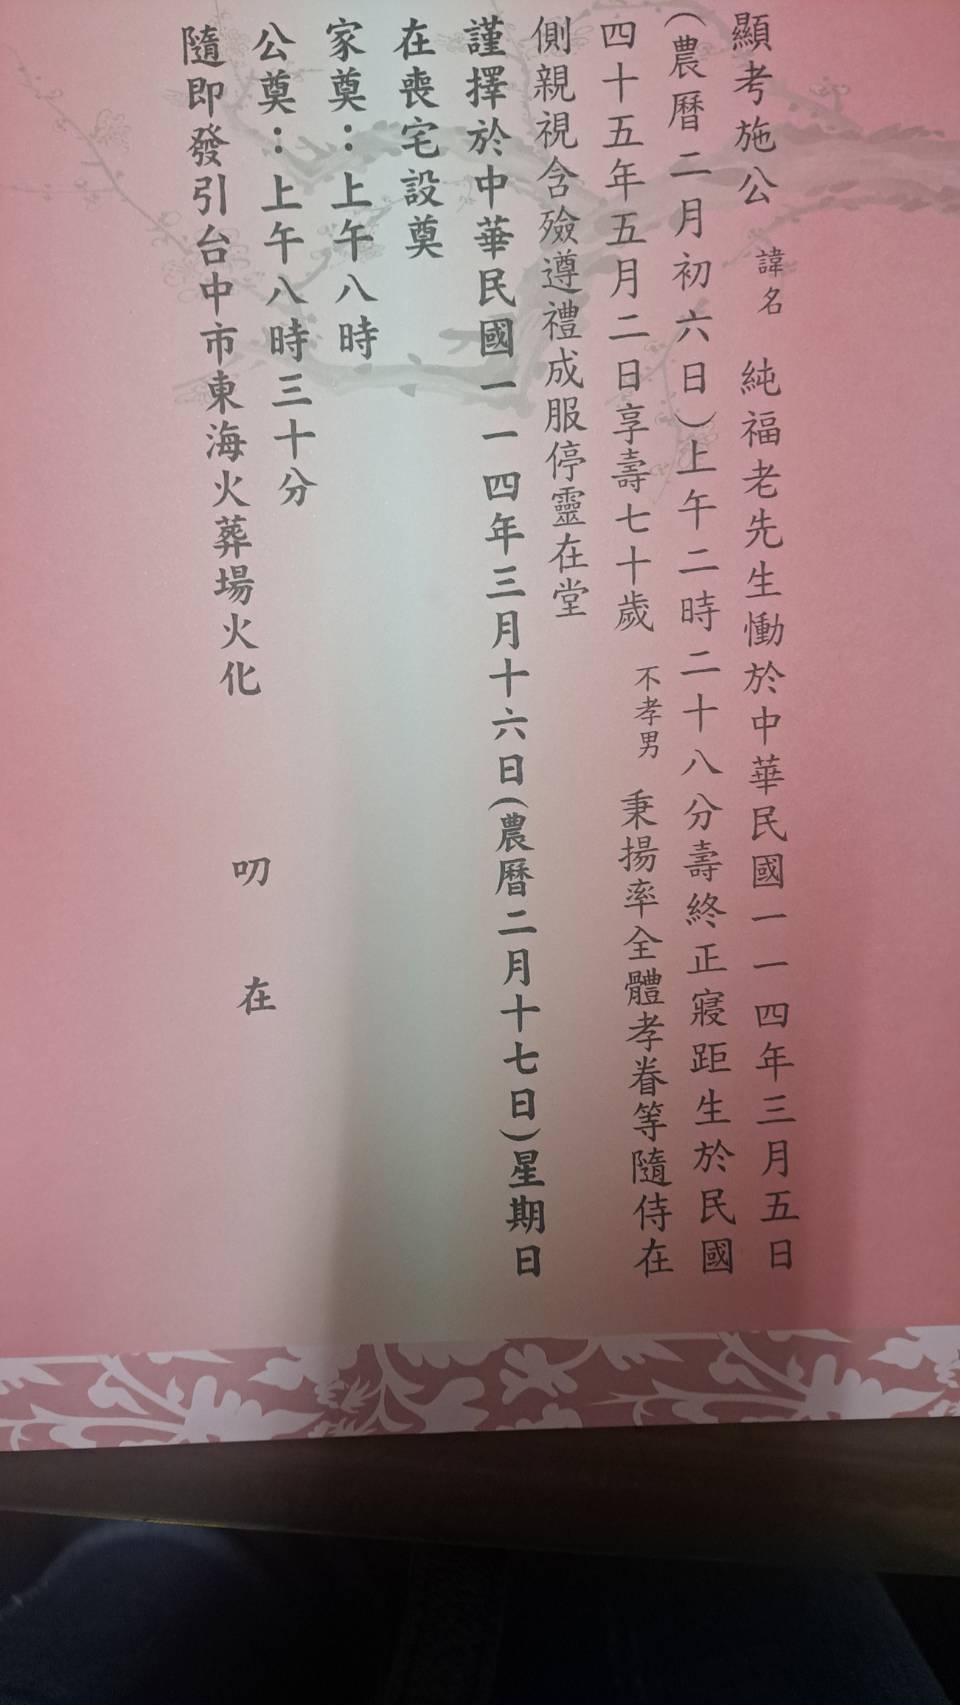 顯考施公 諱名 純福老先生慟於中華民國一一四年三月五日
(農曆二月初六日)上午二時二十八分壽終正寢距生於民國
四十五年五月二日享壽七十歲 不孝男 秉揚率全體孝眷等隨侍在
側親視含殮遵禮成服停靈在堂
謹擇於中華民國一一四年三月十六日(農曆二月十七日)星期日
在喪宅設奠
家奠：上午八時
公奠：上午八時三十分
隨即發引台中市東海火葬場火化 叨 在